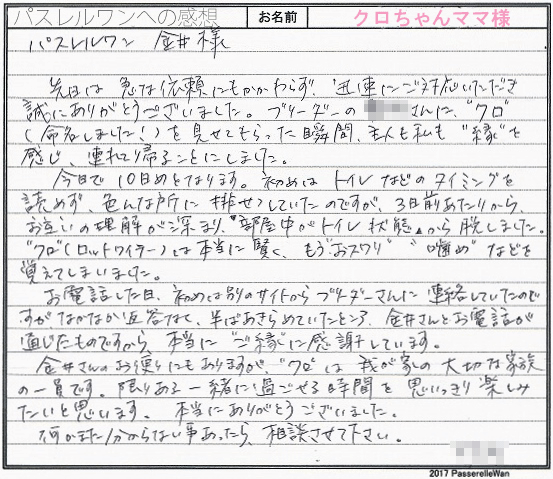 パスレルワンへの感想 お名前 クロちゃんママ様
パスレルワン 金井様
先日は急な依頼にもかかわらず、迅速にご対応いただき
誠にありがとうございました。ブリーダーの さんに、"クロ"
(命名しました!)を見せてもらった瞬間、主人も私も"縁"を
感じ、連れて帰ることにしました。
今日で10日めとなります。初めはトイレなどのタイミングを
読めず、色んな所に排せつしていたのですが、3日前あたりから、
お互いの理解が深まり、"部屋中がトイレ状態"から脱しました。
"クロ"(ロットワイラー)は本当に賢く、もう"おスワリ" "噛め"などを
覚えてしまいました。
お電話した日、初めは別のサイトからブリーダーさんに連絡していたので
すが、なかなか返答なく、半ばあきらめていたところ、金井さんとお電話が
通じたものですから、本当に"ご縁"に感謝しています。
金井さんのお便りにもありますが、"クロ"は我が家の大切な家族
の一員です。限りある一緒に過ごせる時間を思いっきり楽しみ
たいと思います。本当にありがとうございました。
何かまた分からない事あったら、相談させて下さい。
2017 PasserelleWan